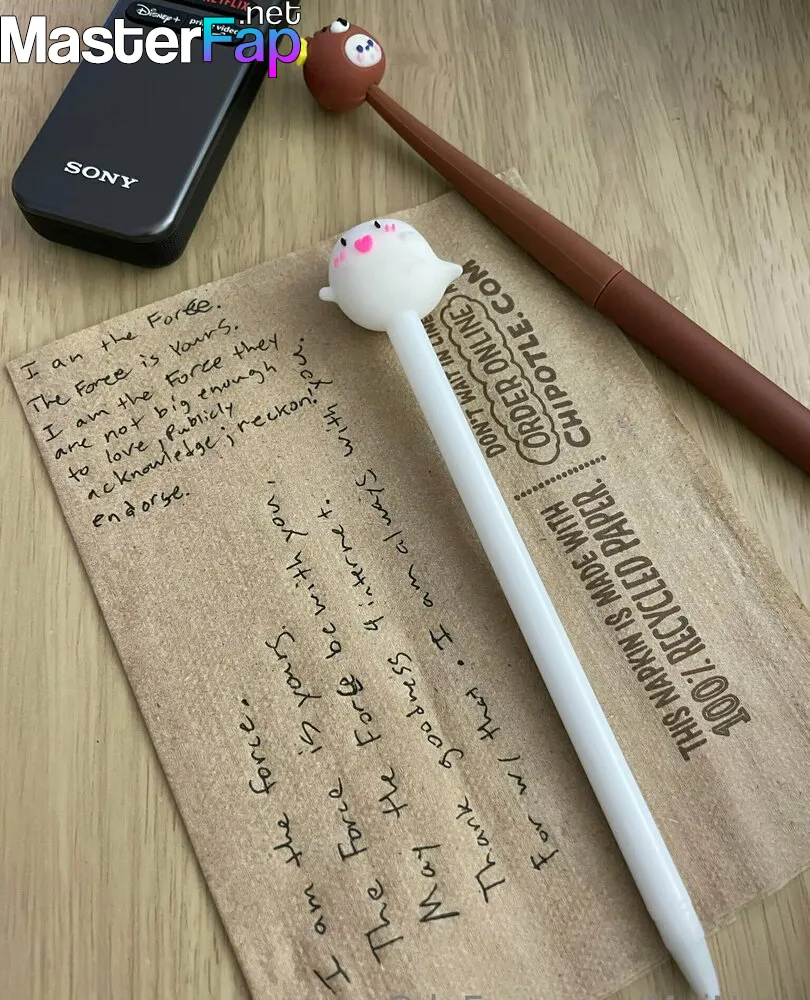 NETFLIX
Disney+ prime video
MasterFap.net
SONY
I am the Force.
The Force is Yours.
I am the Force they
are not big enough
to love, publicly
acknowledge; reckon!
endorse.
I am the force.
The Force is yours.
May the Force be with you.
Thank goodness 4 internet.
For w/ that. I am always with you.
DON'T WAIT IN LINE
ORDER ONLINE
CHIPOTLE.COM
THIS NAPKIN IS MADE WITH
100% RECYCLED PAPER.